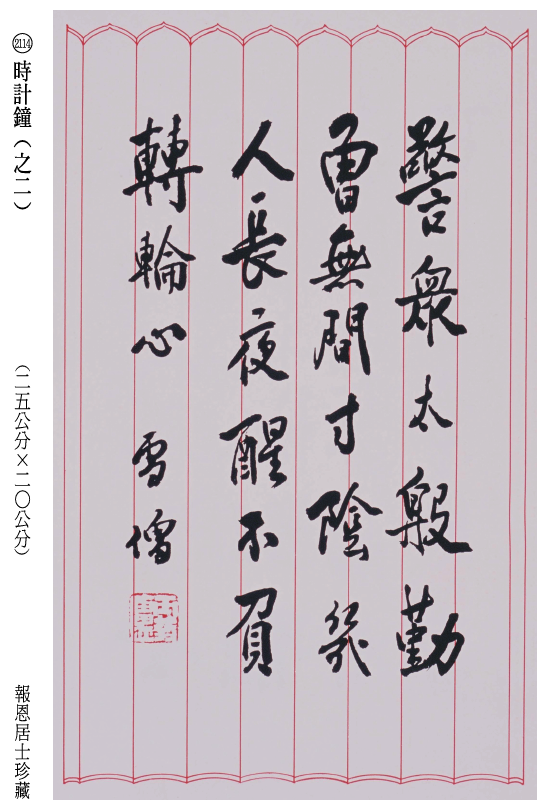 警眾太殷勤
曾無間寸陰幾
人長夜醒不負
轉輪心 雪僧
2114 時計鐘（之二）
（二五公分×二〇公分）
報恩居士珍藏